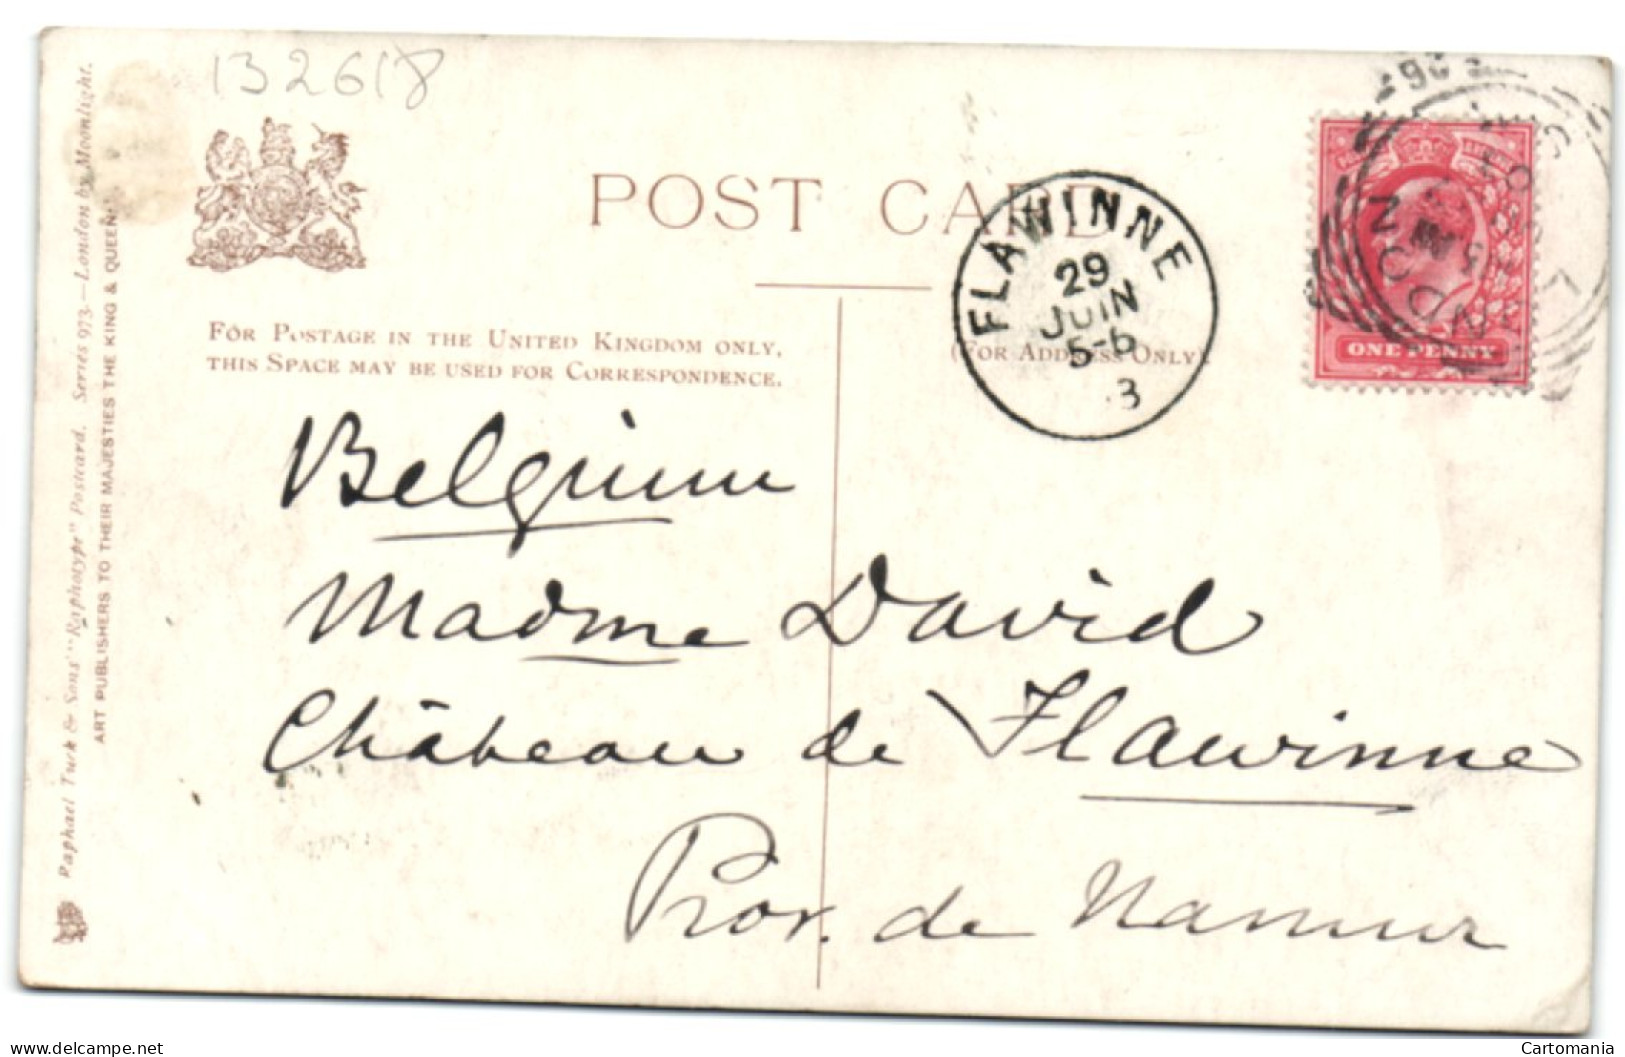 132618
POST CARD
FOR POSTAGE IN THE UNITED KINGDOM ONLY,
THIS SPACE MAY BE USED FOR CORRESPONDENCE.
(FOR ADDRESS ONLY).
FLAWINNE
29
JUIN
5-6
3
ONE PENNY
Belgium
Madme David
Château de Flawinne
Prov. de Namur
Raphael Tuck & Sons' "Raphotype" Postcard. Series 973.—London by Moonlight.
ART PUBLISHERS TO THEIR MAJESTIES THE KING & QUEEN
delcampe.net
Cartomania